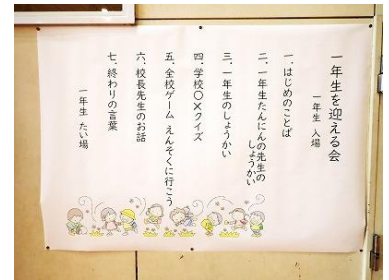 一年生を迎える会
一年生 入場
一、はじめのことば
二、一年生たんにんの先生の
しょうかい
三、一年生のしょうかい
四、学校〇×クイズ
五、全校ゲーム えんそくに行こう
六、校長先生のお話
七、終わりの言葉
一年生 たい場